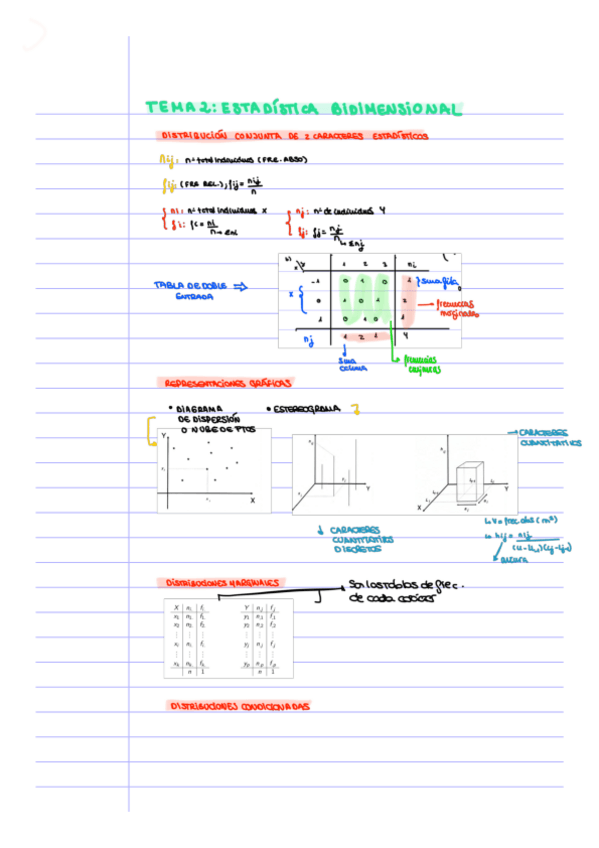 TEMA 2: ESTADÍSTICA BIDIMENSIONAL
DISTRIBUCIÓN CONJUNTA DE 2 CARACTERES ESTADÍSTICOS
nij: nº total individuos (FRE. ABSO)
fij: (FRE REL.); fij = nij/n
ni: nº total individuos X
fi: fi = ni/n → Σni
nj: nº de individuos Y
fj: fj = nj/n → Σnj
TABLA DE DOBLE ENTRADA ⇒
b)
X \ Y 1 2 3 ni
-1 0 1 0 1 } suma fila
X { 0 1 0 1 2 → frecuencias marginales
1 0 1 0 1
nj 1 2 1 4
suma columna
frecuencias conjuntas
REPRESENTACIONES GRÁFICAS
• DIAGRAMA DE DISPERSIÓN O NUBE DE PTOS
• ESTEREOGRAMA
Y
X
Y
X
Y
→ CARACTERES CUANTITATIVOS
↓ CARACTERES CUANTITATIVOS DISCRETOS
↳ V = frec. abs (m³)
↳ hij = nij
altura
DISTRIBUCIONES MARGINALES
Son los totales de frec.
de cada
X ni. fi.
x1 n1. f1.
x2 n2. f2.
⋮ ⋮ ⋮
xi ni. fi.
⋮ ⋮ ⋮
xk nk. fk.
n 1
Y n.j f.j
y1 n.1 f.1
y2 n.2 f.2
⋮ ⋮ ⋮
yj n.j f.j
⋮ ⋮ ⋮
yp n.p f.p
n 1
DISTRIBUCIONES CONDICIONADAS